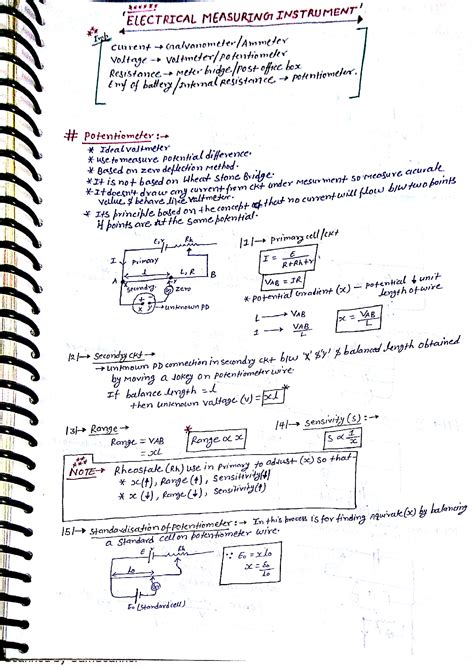 'ELECTRICAL MEASURING INSTRUMENT'
Current → Galvanometer/Ammeter
Voltage → Voltmeter/Potentiometer
Resistance → Meter bridge/Post office box
Emf of battery/Internal Resistance → Potentiometer.
# Potentiometer :→
* Ideal voltmeter
* use to measure potential difference.
* Based on zero deflection Method.
* It is not based on Wheat Stone Bridge.
* It doesn't draw any current from ckt under Mesurment so measure acurate
value & behave like voltmeter.
* Its principle based on the concept that no current will flow b/w two points
if points are at the same potential.
E, r Rh
I
Primary
l L, R B
Secondry
zero
x y
→ unknown PD
|1|→ Primary cell/ckt
I = E / R+Rh+r
VAB = IR
* Potential Gradient (x) — Potential ↓ unit
length of wire
L → VAB
1 → VAB/L
x = VAB/L
|2|→ Secondry ckt →
→ unknown PD connection in secondry ckt b/w 'x' & 'y' & balanced length obtained
by moving a Jokey on potentiometer wire
If balance length = l
then unknown voltage (v) = xl *
|3|→ Range →
Range = VAB
= xL
* Range ∝ x
|4|→ Sensivity (S) :→
S ∝ 1/x
NOTE → Rheostate (Rh) use in Primary to adjust (x) so that
* x(↑), Range (↑), Sensitivity(↓)
* x (↓), Range (↓), Sensitivity(↑)
|5|→ Standardisation of Potentiometer :→ In this process is for finding (x) by balancing
a Standard cell on potentiometer wire.
E Rh
lo
Eo (Standard cell)
∵ Eo = xlo
x = Eo/lo